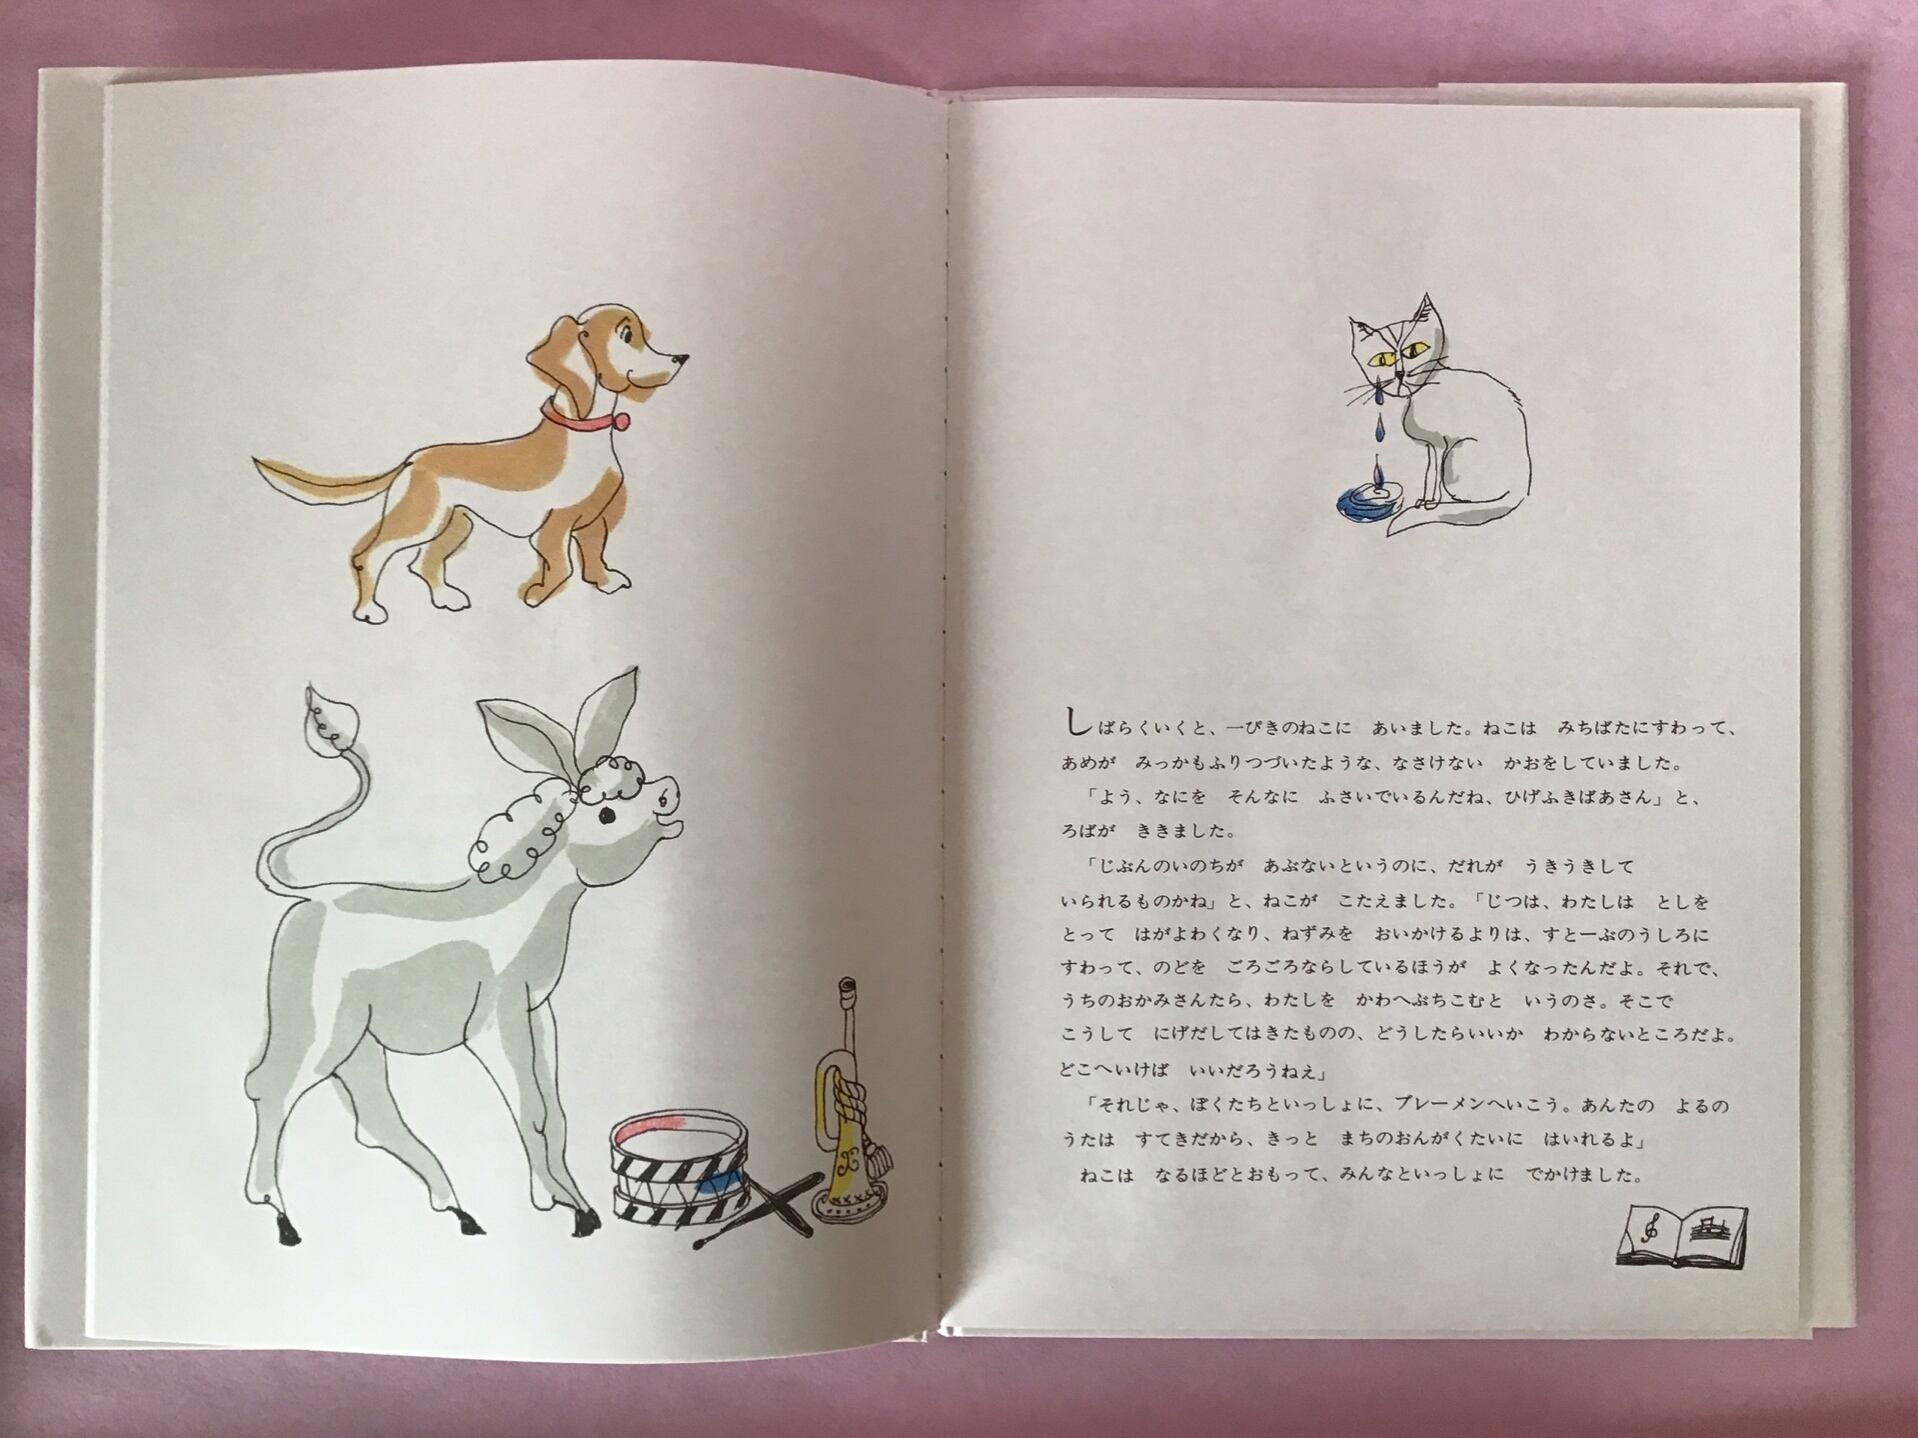 しばらくいくと、一ぴきのねこに　あいました。ねこは　みちばたにすわって、
あめが　みっかもふりつづいたような、なさけない　かおをしていました。
「よう、なにを　そんなに　ふさいでいるんだね、ひげふきばあさん」と、
ろばが　ききました。
「じぶんのいのちが　あぶないというのに、だれが　うきうきして
いられるものかね」と、ねこが　こたえました。「じつは、わたしは　としを
とって　はがよわくなり、ねずみを　おいかけるよりは、すとーぶのうしろに
すわって、のどを　ごろごろならしているほうが　よくなったんだよ。それで、
うちのおかみさんたら、わたしを　かわへぶちこむと　いうのさ。そこで
こうして　にげだしてはきたものの、どうしたらいいか　わからないところだよ。
どこへいけば　いいだろうねえ」
「それじゃ、ぼくたちといっしょに、ブレーメンへいこう。あんたの　よるの
うたは　すてきだから、きっと　まちのおんがくたいに　はいれるよ」
ねこは　なるほどとおもって、みんなといっしょに　でかけました。